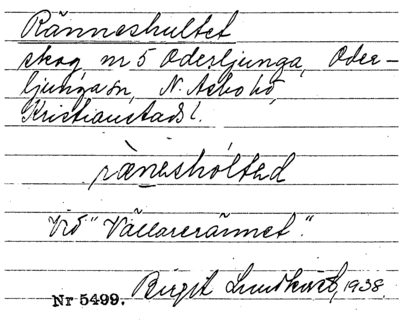 Ränneshultet
skog nr 5 Oderljunga, Oder-
ljunga sn, N. Åsbo hd,
Kristianstads l.
ræneshóltəd
Vid "Vällarerännet".
Nr 5499. Birgit Lundkvist, 1938.